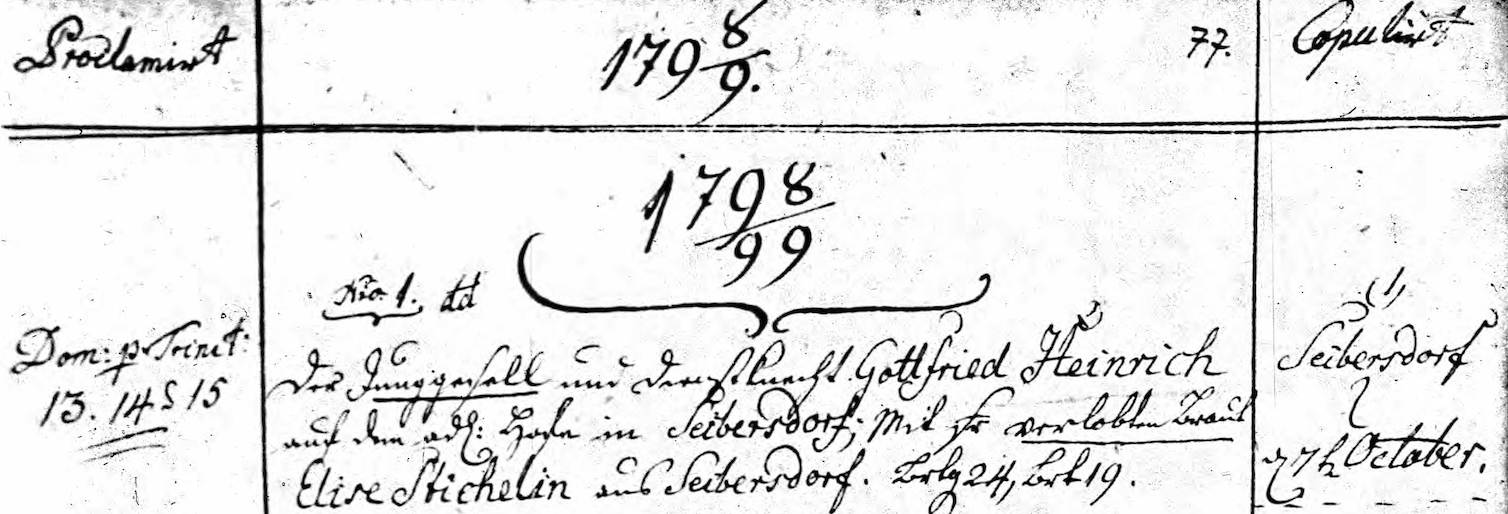 Proclamirt
179 8/9.
77.
Copulirt
1798/99
Nro. 1. dd
Dom: p. Trinit:
13. 14 & 15
Der Junggesell und Dienstknecht Gottfried Heinrich
auf dem adl: Hofe in Seibersdorf; Mit sr verlobten Braut
Elise Stichelin aus Seibersdorf. Brtg 24, Brt 19.
(1)
Seibersdorf
October.